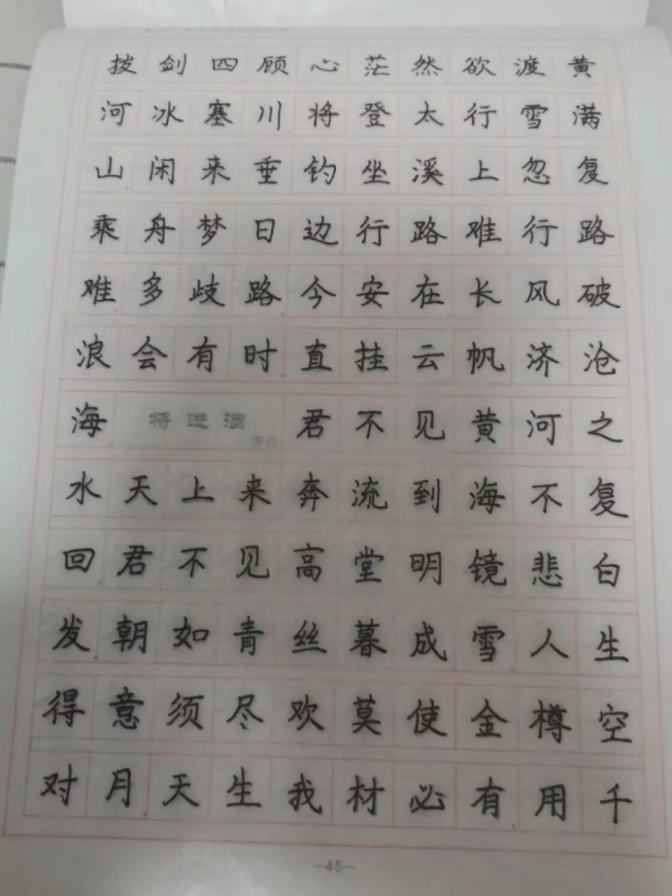 拔剑四顾心茫然欲渡黄
河冰塞川将登太行雪满
山闲来垂钓坐溪上忽复
乘舟梦日边行路难行路
难多歧路今安在长风破
浪会有时直挂云帆济沧
海 将进酒 君不见黄河之
水天上来奔流到海不复
回君不见高堂明镜悲白
发朝如青丝暮成雪人生
得意须尽欢莫使金樽空
对月天生我材必有用千
—45—